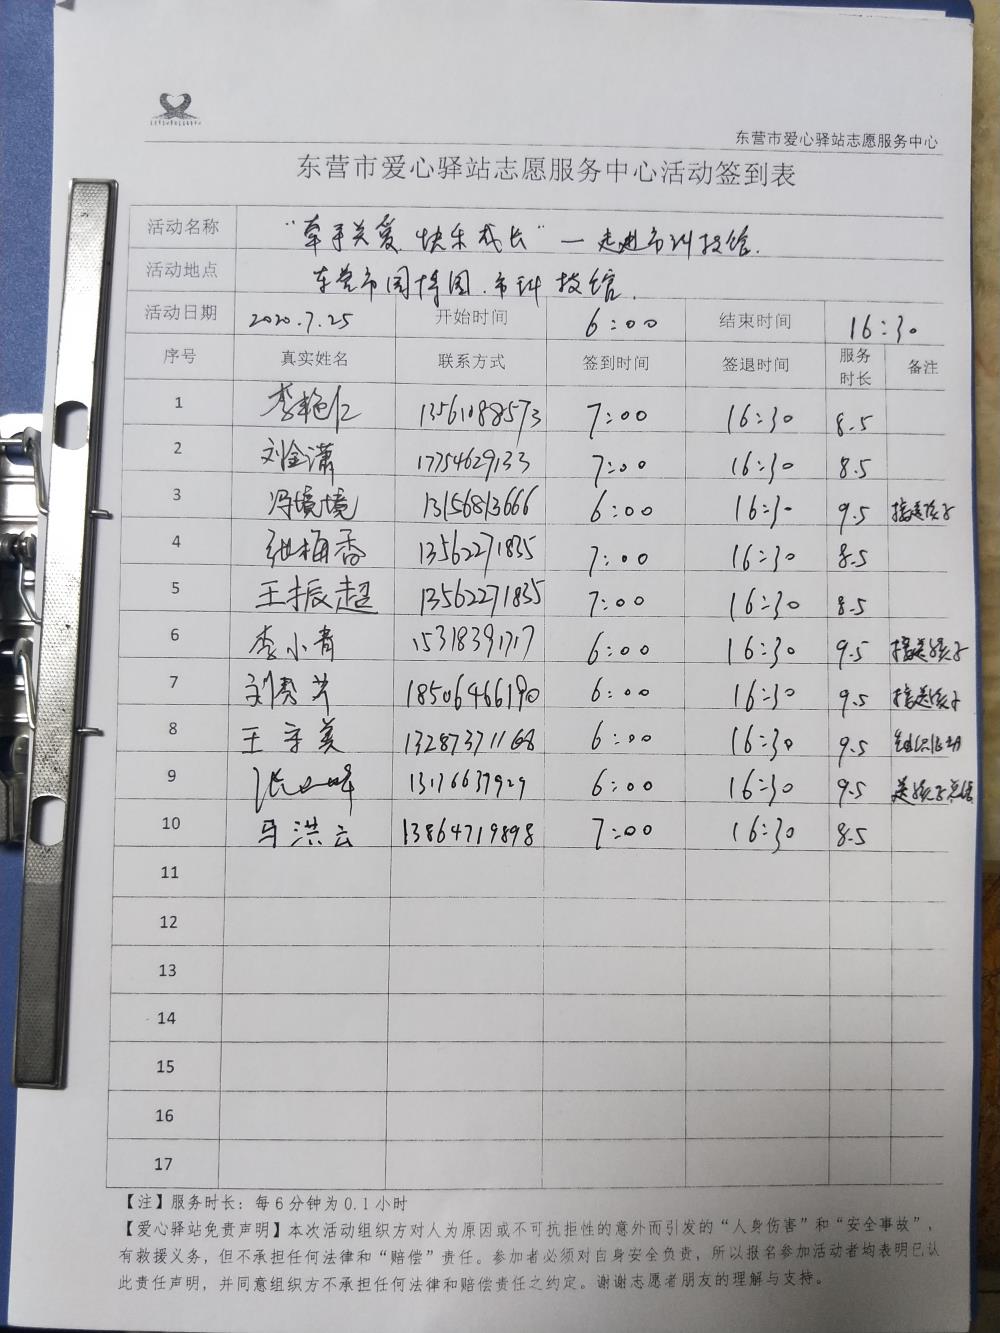 东营市爱心驿站志愿服务中心
东营市爱心驿站志愿服务中心活动签到表
活动名称 “牵手关爱 快乐成长”— 走进市科技馆.
活动地点 东营市园博园.市科技馆.
活动日期 2020.7.25 开始时间 6:00 结束时间 16:30
序号 真实姓名 联系方式 签到时间 签退时间 服务时长 备注
1 李艳仁 13561088573 7:00 16:30 8.5
2 刘金潇 17754629133 7:00 16:30 8.5
3 冯境境 13156813666 6:00 16:30 9.5 接送孩子
4 张梅香 13562271835 7:00 16:30 8.5
5 王振超 13562271835 7:00 16:30 8.5
6 李小青 15318391717 6:00 16:30 9.5 接送孩子
7 刘 芳 18506466190 6:00 16:30 9.5 接送孩子
8 王 美 13287371168 6:00 16:30 9.5 组织活动
9 13176637929 6:00 16:30 9.5 送孩子
10 马洪云 13864719898 7:00 16:30 8.5
11
12
13
14
15
16
17
【注】服务时长：每6分钟为0.1小时
【爱心驿站免责声明】本次活动组织方对人为原因或不可抗拒性的意外而引发的“人身伤害”和“安全事故”，
有救援义务，但不承担任何法律和“赔偿”责任。参加者必须对自身安全负责，所以报名参加活动者均表明已认
此责任声明，并同意组织方不承担任何法律和赔偿责任之约定。谢谢志愿者朋友的理解与支持。